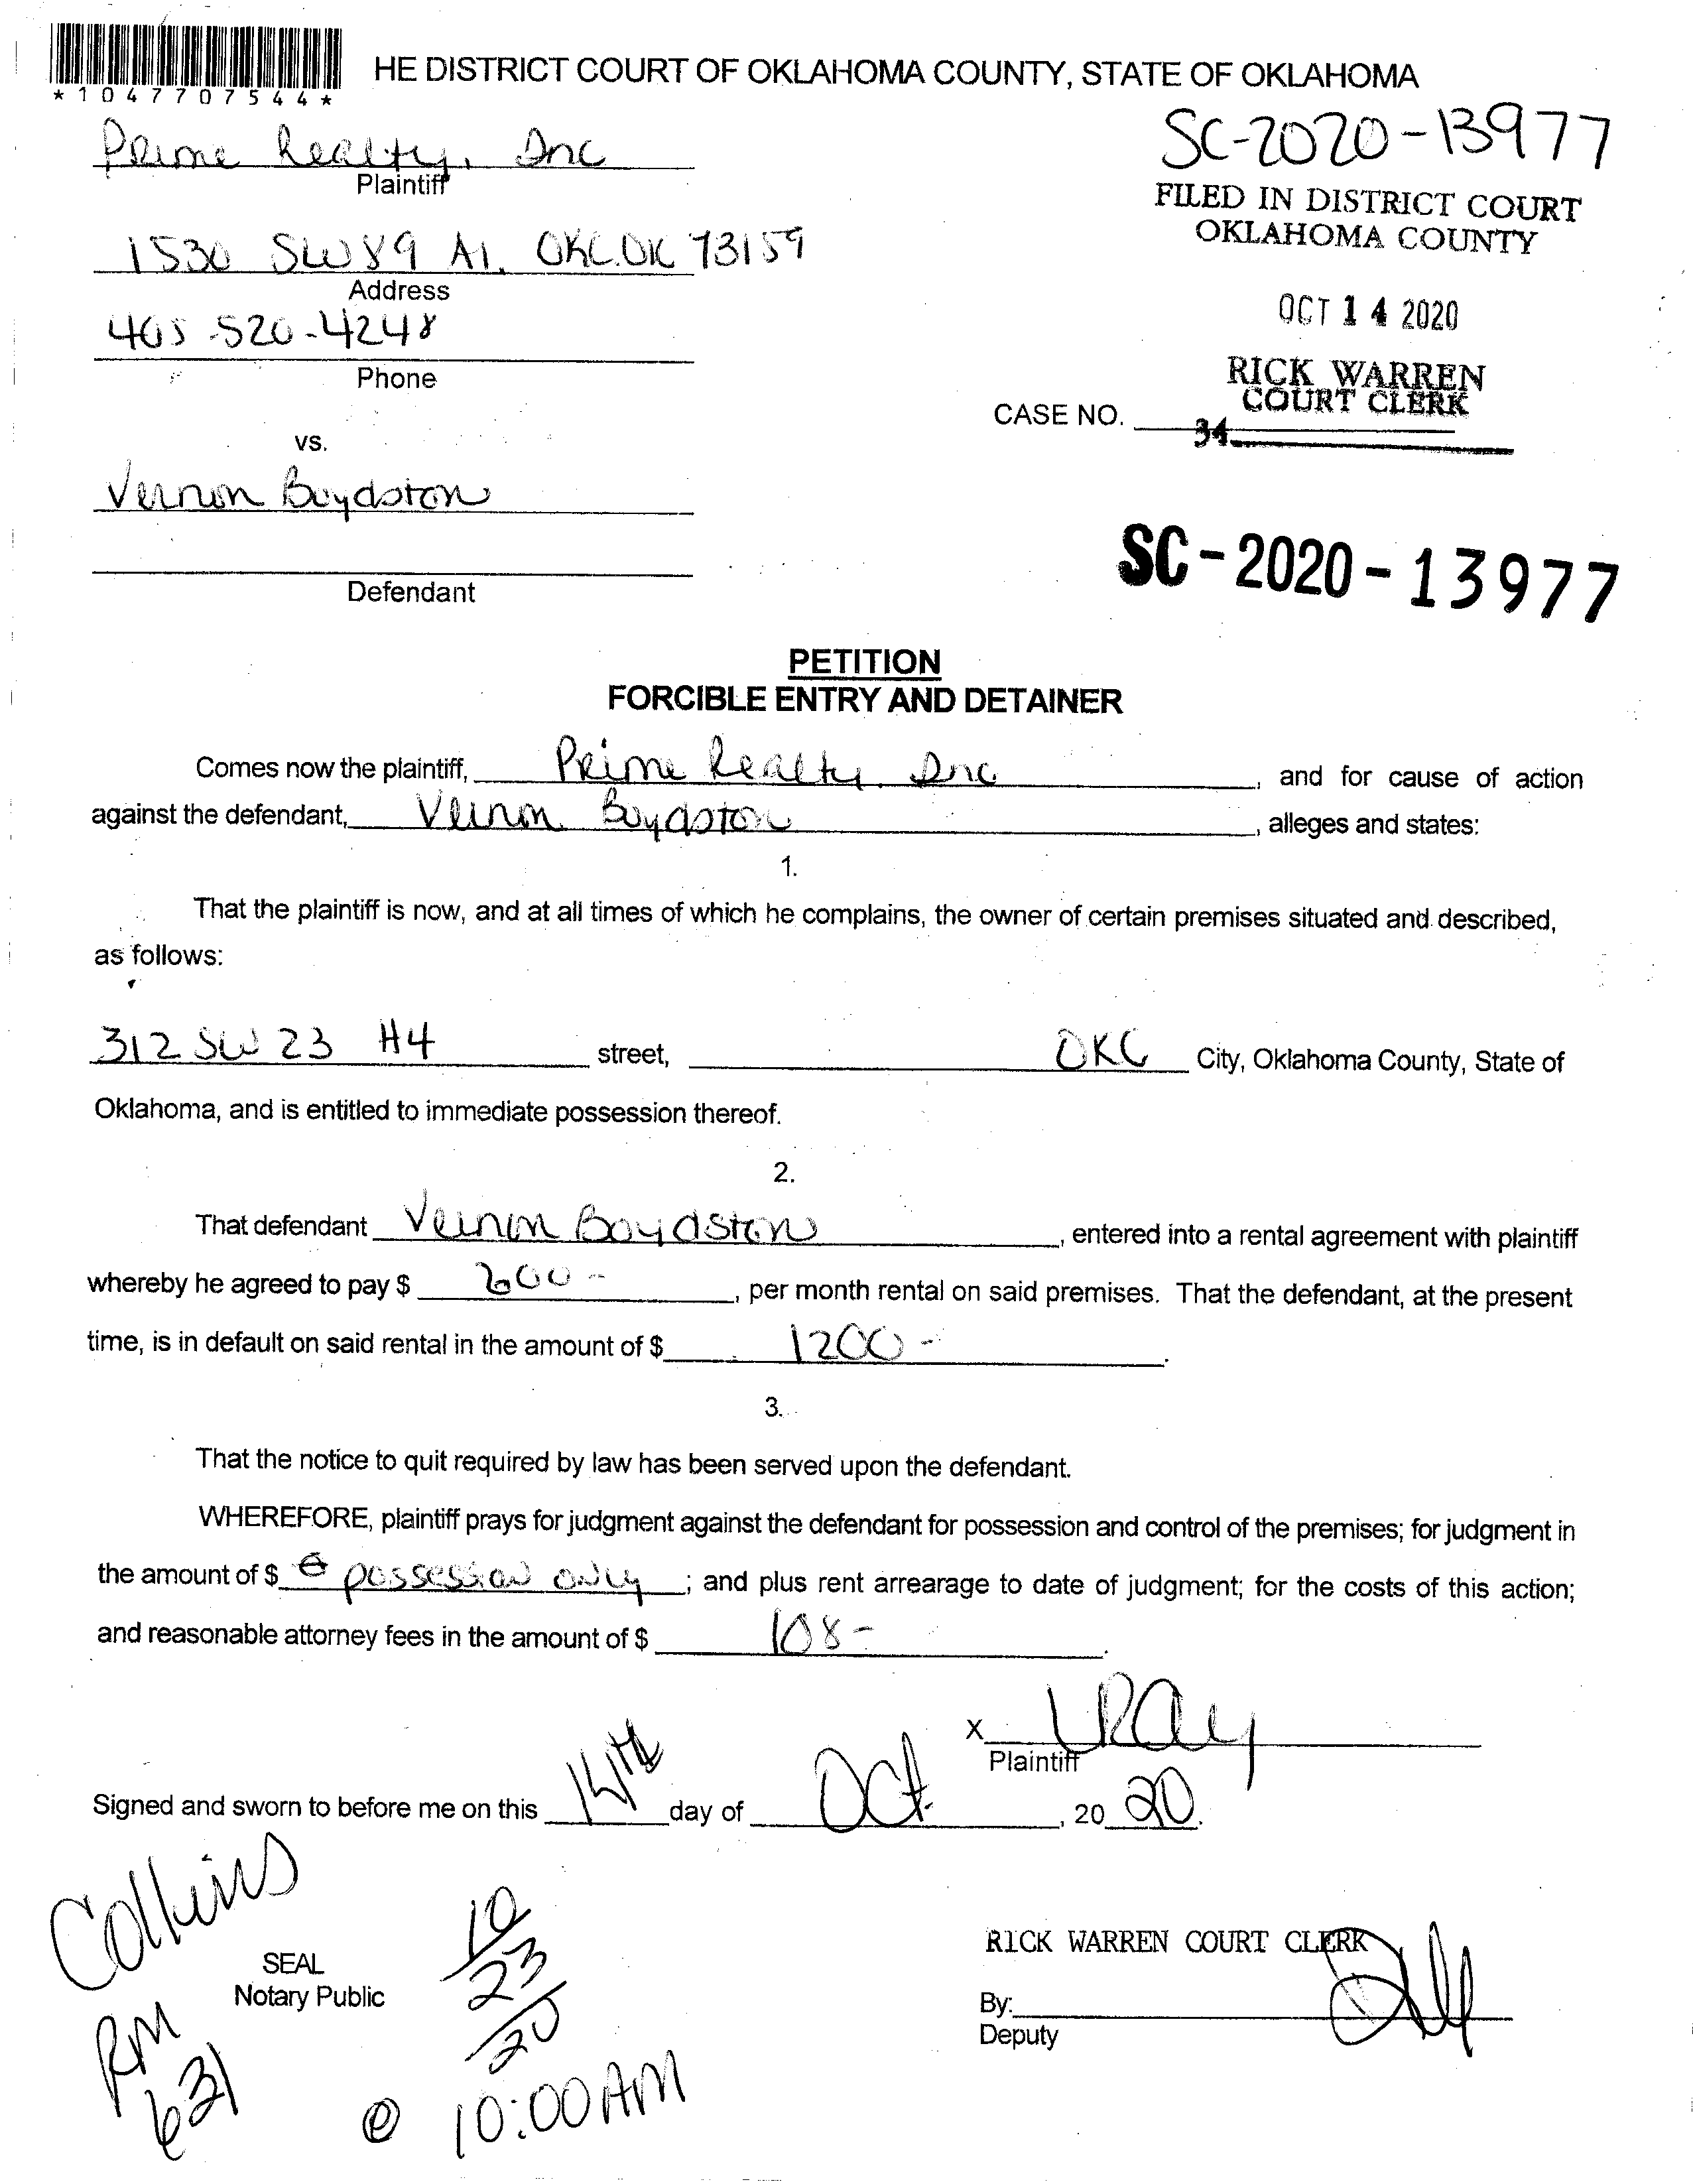 *1047707544*
HE DISTRICT COURT OF OKLAHOMA COUNTY, STATE OF OKLAHOMA
Prime Realty, Inc
Plaintiff
SC-2020-13977
FILED IN DISTRICT COURT
OKLAHOMA COUNTY
1530 SW 89 A1. OKC.OK 73159
Address
OCT 14 2020
405-520-4248
Phone
RICK WARREN
COURT CLERK
CASE NO.
34
vs.
Vernon Boydston
Defendant
SC-2020-13977
PETITION
FORCIBLE ENTRY AND DETAINER
Comes now the plaintiff, Prime Realty, Inc, and for cause of action
against the defendant, Vernon Boydston, alleges and states:
1.
That the plaintiff is now, and at all times of which he complains, the owner of certain premises situated and described,
as follows:
312 SW 23 #4 street, OKC City, Oklahoma County, State of
Oklahoma, and is entitled to immediate possession thereof.
2.
That defendant Vernon Boydston, entered into a rental agreement with plaintiff
whereby he agreed to pay $ 600-, per month rental on said premises. That the defendant, at the present
time, is in default on said rental in the amount of $ 1200-.
3.
That the notice to quit required by law has been served upon the defendant.
WHEREFORE, plaintiff prays for judgment against the defendant for possession and control of the premises; for judgment in
the amount of $ 0 possession only; and plus rent arrearage to date of judgment; for the costs of this action;
and reasonable attorney fees in the amount of $ 108-.
X LRay
Plaintiff
Signed and sworn to before me on this 14th day of Oct., 20 20.
Collins
RM
631
SEAL
Notary Public
10/23/20
@ 10:00 AM
RICK WARREN COURT CLERK
By:
Deputy